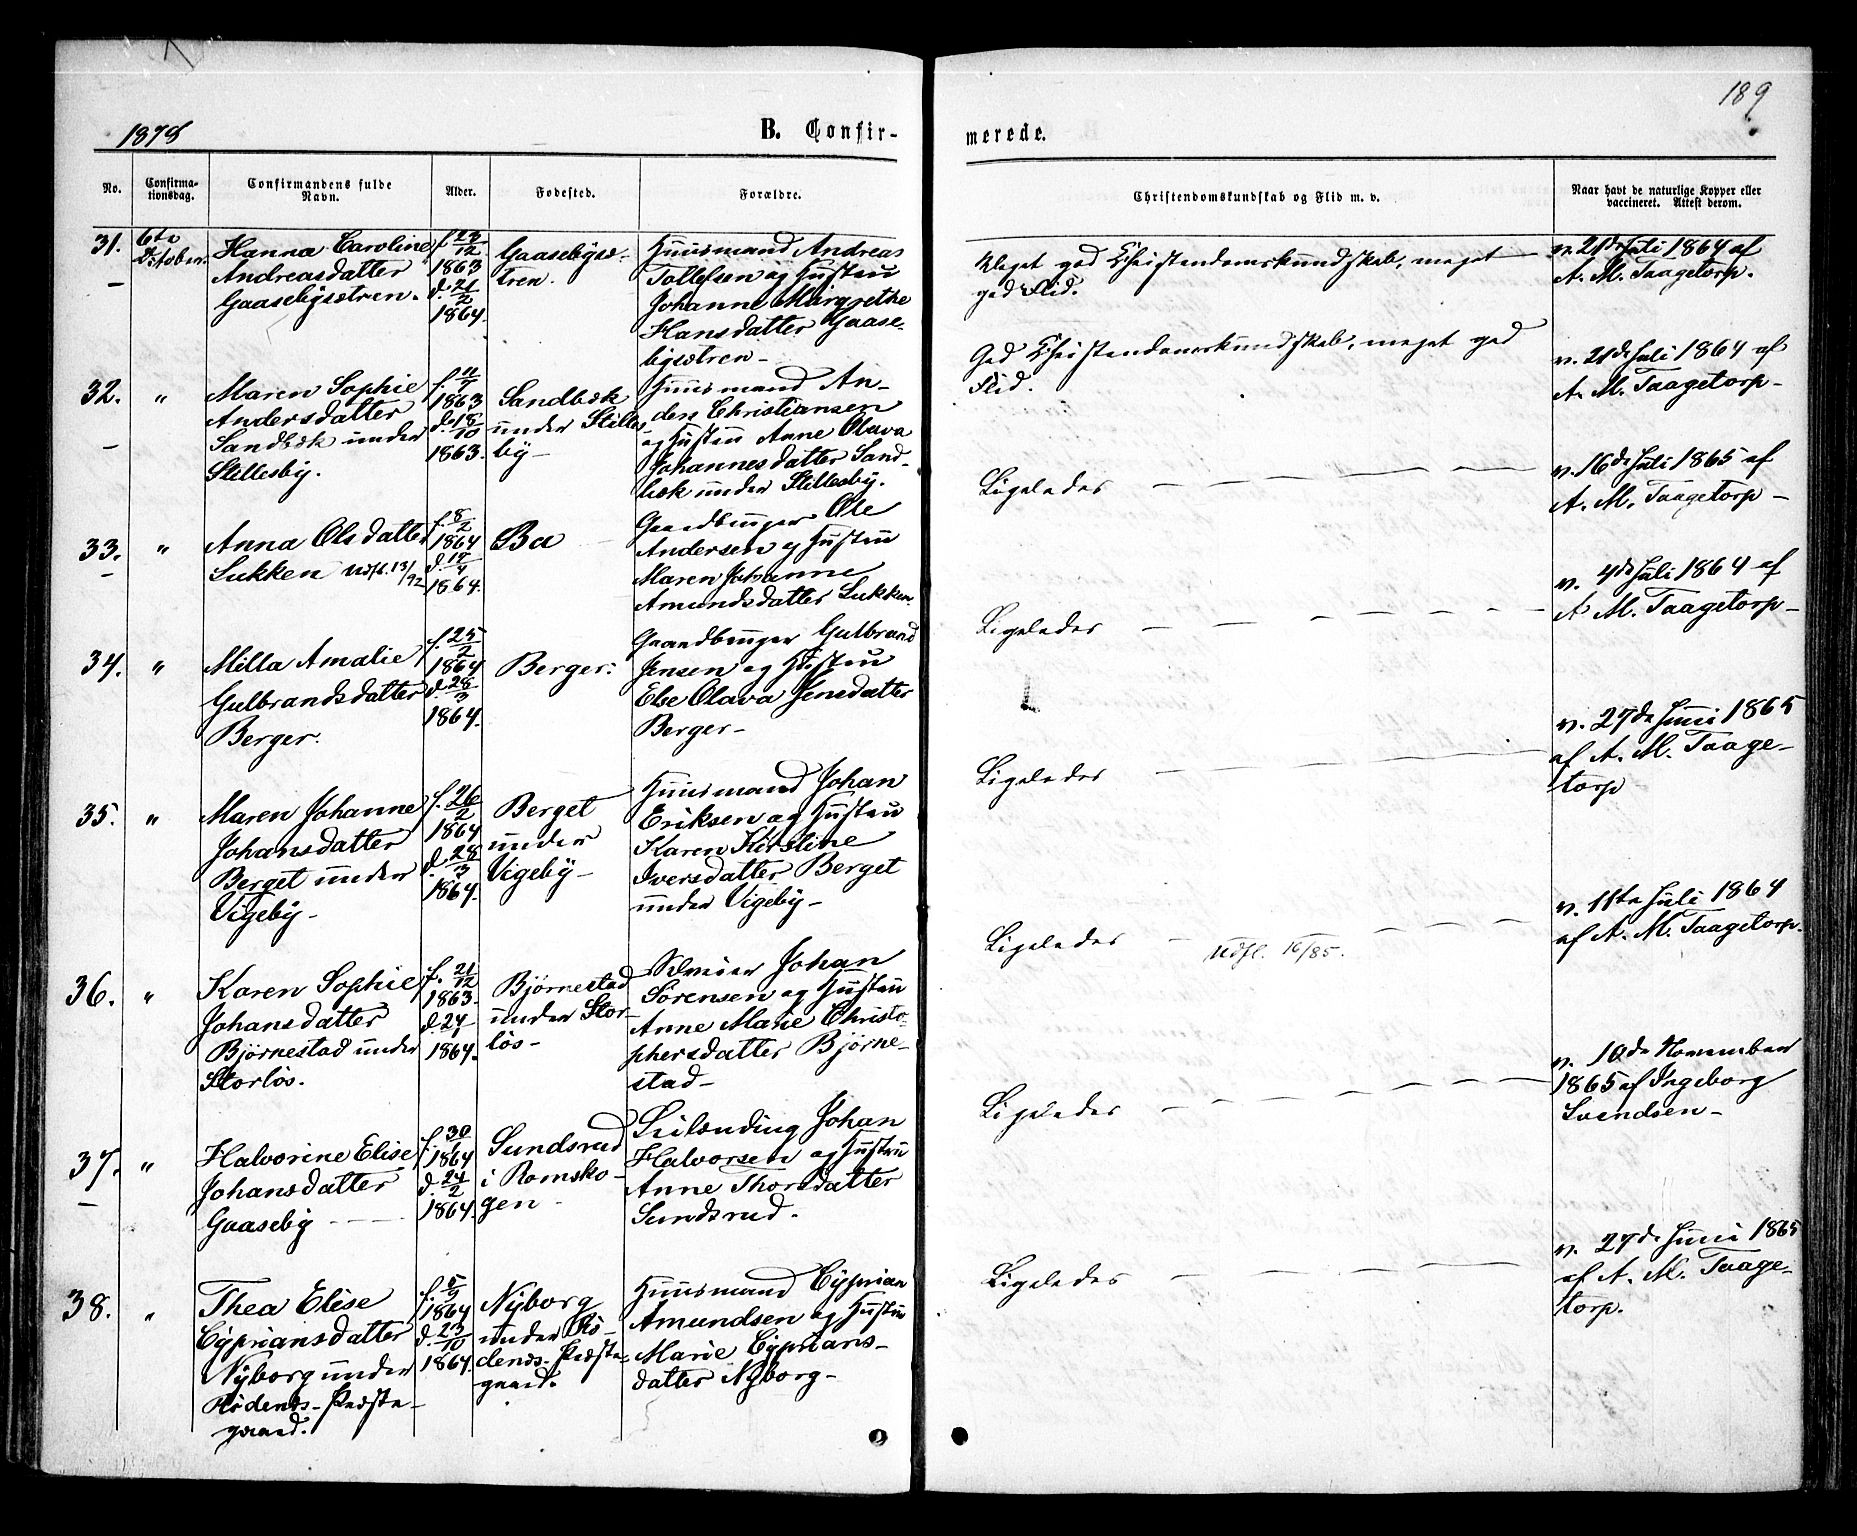 189
1878
B. Confir-
merede.
No.
Confirma-
tionsdag.
Confirmandens fulde
Navn.
Alder.
Fødested.
Forældre.
Christendomskundskab og Flid m. v.
Naar havt de naturlige Kopper eller
vaccineret. Attest derom.
31.
6te
October.
Hanna Caroline
Andreasdatter
Gaasebysætren.
f. 23/12
1863
d. 21/2
1864.
Gaasebysæ-
tren.
Huusmand Andreas
Tollefsen og Hustru
Johanne Margrethe
Hansdatter Gaase-
bysætren-
Meget god Christendomskundskab, meget
god Flid.
v. 21de Juli 1864 af
A. M. Taagetorp.
32.
"
Maren Sophie
Andersdatter
Sandbæk under
Stillesby.
1863
d. 18/10
1863.
Sandbæk
under Stilles-
by-
Huusmand An-
ders Christiansen
og Hustru Anne Olava
Johannesdatter Sand-
bæk under Stillesby.
God Christendomskundskab, meget god
Flid.
v. 21de Juli 1864 af
A. M. Taagetorp-
33.
"
Anna Olsdatter
Lukken Udfl. 13/92
f. 8/2
1864
d. 17/4
1864.
Bø
Gaardbruger Ole
Andersen og Hustru
Maren Johanne
Amundsdatter Lukken.
Ligeledes
v. 16de Juli 1865 af
A. M. Taagetorp-
34.
"
Milla Amalie
Gulbrandsdatter
Berger.
f. 25/2
1864
d. 28/3
1864.
Berger.
Gaardbruger Gulbrand
Jensen og Hustru
Else Olava Jensdatter
Berger-
Ligeledes
v. 4de Juli 1864 af
A. M. Taagetorp-
35.
"
Maren Johanne
Johansdatter
Berget under
Vigeby-
f. 26/2
1864
d. 28/3
1864.
Berget
under
Vigeby-
Huusmand Johan
Eriksen og Hustru
Karen Kirstine
Iversdatter Berget
under Vigeby-
Ligeledes
v. 27de Juni 1865
af A. M. Taage-
torp-
36.
"
Karen Sophie
Johansdatter
Bjørnestad under
Storløs.
f. 21/12
1863.
d. 24/1
1864.
Bjørnestad
under Stor-
løs-
Johan
Sørensen og Hustru
Anne Marie Christo-
phersdatter Bjørne-
stad-
Ligeledes
Udfl. 16/85.
v. 11te Juli 1864
af A. M. Taagetorp.
37.
"
Halvorine Elise
Johansdatter
Gaaseby
f. 30/1
1864
d. 24/2
1864.
Sundsrud
i Romsko-
gen-
Leilænding Johan
Halvorsen og Hustru
Anne Thorsdatter
Sundsrud.
Ligeledes
v. 10de November
1865 af Ingeborg
Svendsen-
38.
"
Thea Elise
Cypriansdatter
Nyborg under
Rødenes-Præste-
gaard.
f. 5/9
1864
d. 23/10
1864.
Nyborg
under Rø-
denes-Præste-
gaard.
Huusmand Cyprian
Amundsen og Hustru
Marie Cyprians-
datter Nyborg-
Ligeledes
v. 27de Juni 1865
af A. M. Taage-
torp.